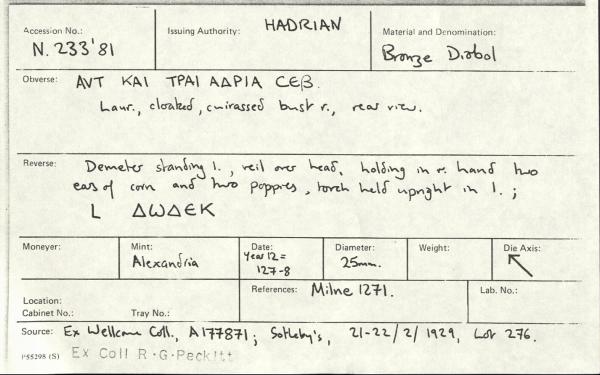 Accession No.: N. 233'81
Issuing Authority: HADRIAN
Material and Denomination: Bronze Diobol
Obverse: ΑVΤ ΚΑΙ ΤΡΑΙ ΑΔΡΙΑ CЄΒ.
Laur., cloaked, cuirassed bust r., rear view.
Reverse: Demeter standing l., veil over head, holding in r. hand two
ears of corn and two poppies, torch held upright in l.;
L ΔWΔЄΚ
Moneyer:
Mint: Alexandria
Date: Year 12 = 127-8
Diameter: 25mm.
Weight:
Die Axis:
Location:
Cabinet No.: Tray No.:
References: Milne 1271.
Lab. No.:
Source: Ex Wellcome Coll., A177871; Sotheby's, 21-22/2/1929, Lot 276.
P55298 (S) Ex Coll R.G.Peckitt